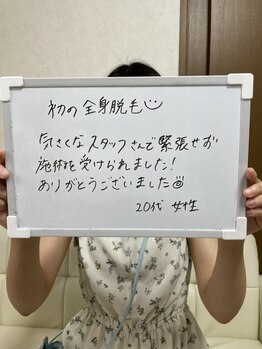 初の全身脱毛
気さくなスタッフさんで緊張せお
施術を受けられました!
ありがとうございました
20代 女性